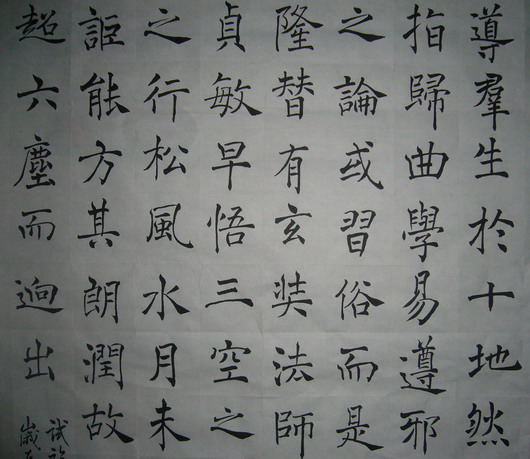 導羣生於十地然
指歸曲學易遵邪
之論或習俗而是
隆替有玄奘法師
貞敏早悟三空之
之行松風水月未
詎能方其朗潤故
超六塵而逈出